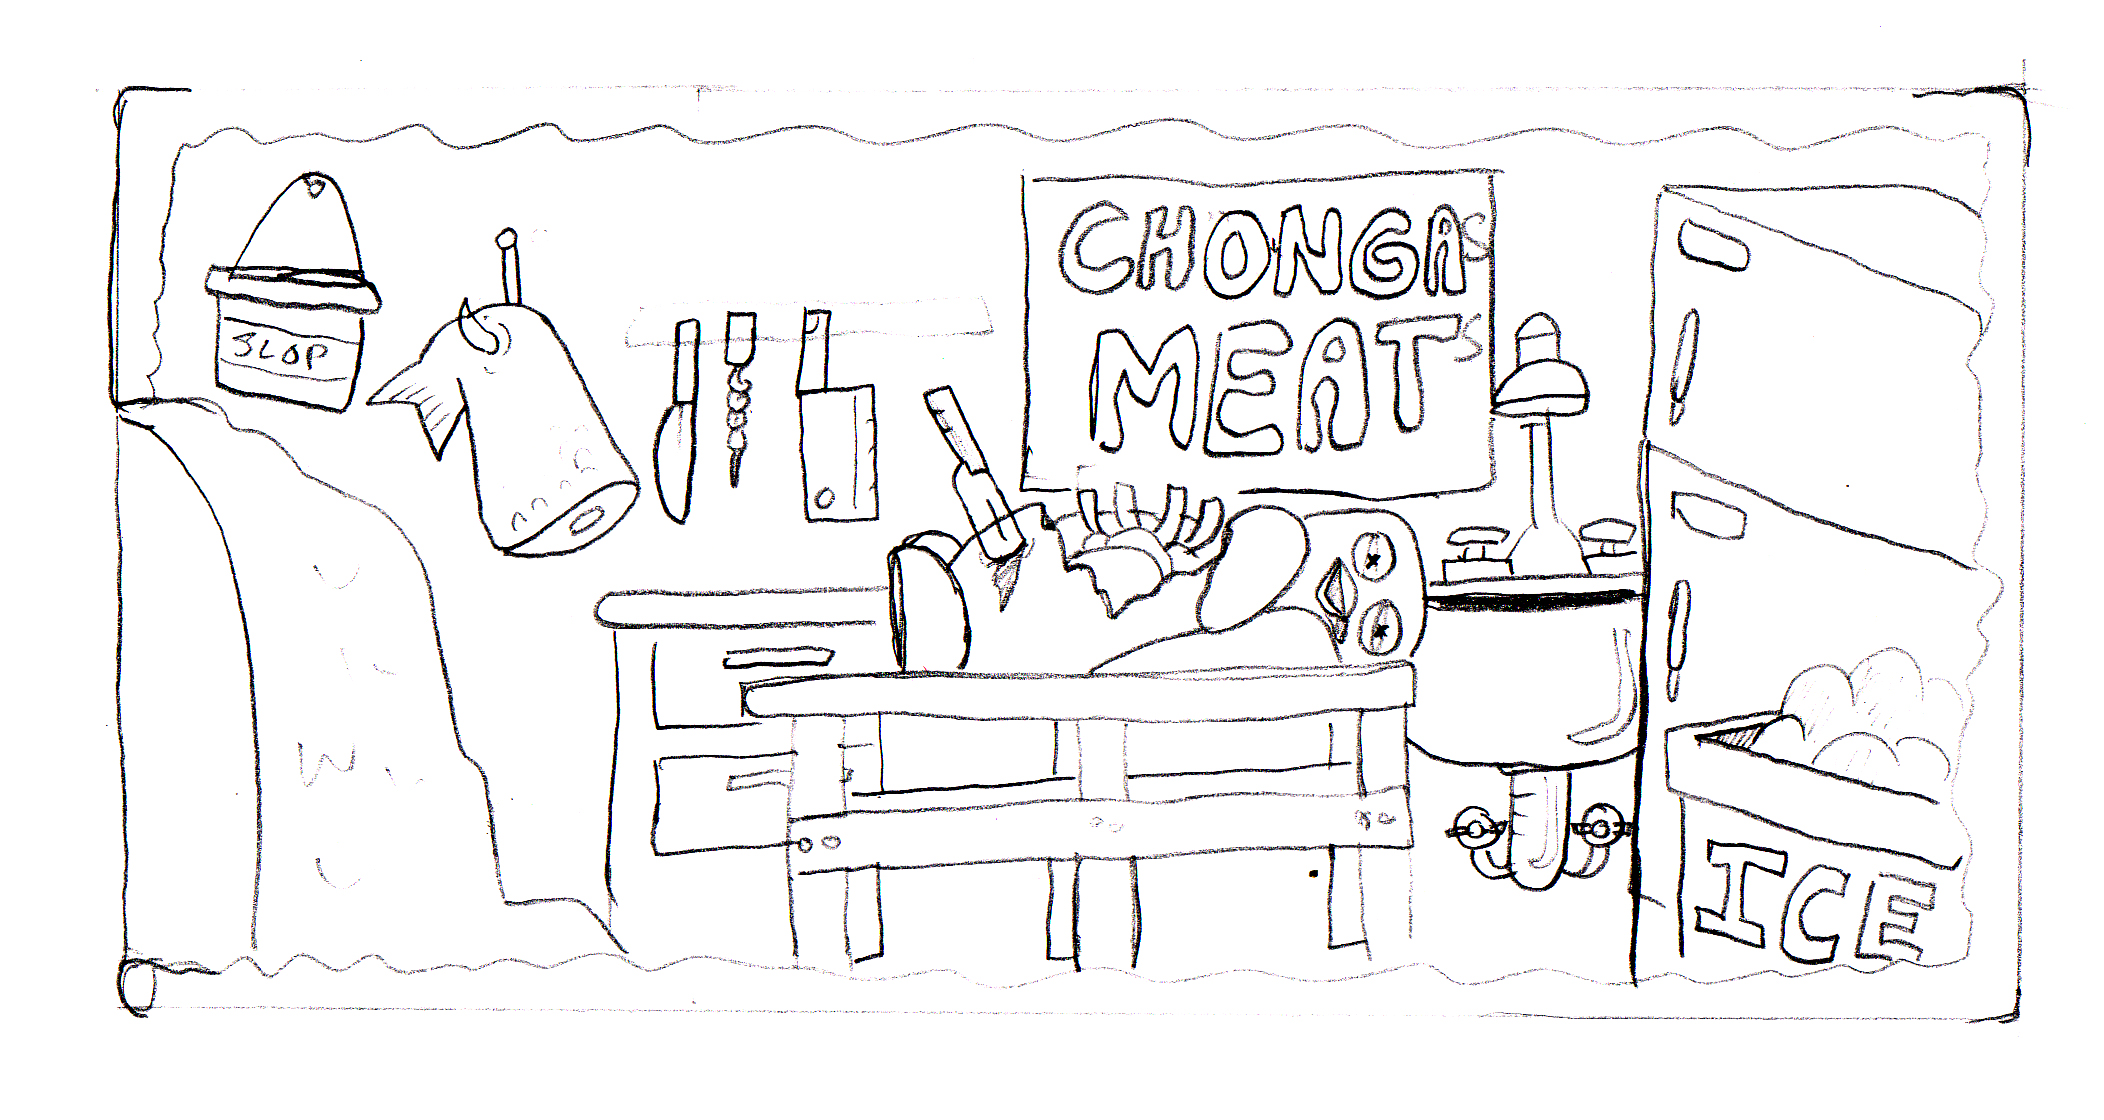 SLOP
CHONGA'S
MEATS
ICE